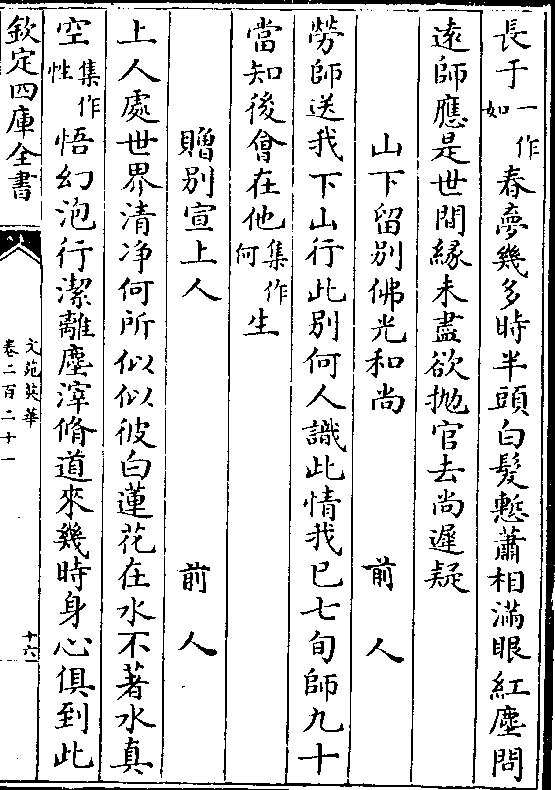 長于一作如春夢幾多時半頭白髮慙蕭相滿眼紅塵問
遠師應是世間緣未盡欲抛官去尚遲疑
山下留別佛光和尚 前人
勞師送我下山行此別何人識此情我已七旬師九十
當知後會在他集作何生
贈別宣上人 前人
上人處世界清净何所似似彼白蓮花在水不著水真
空集作性悟幻泡行潔離塵滓脩道來幾時身心俱到此
欽定四庫全書
文苑英華
卷二百二十一
十六